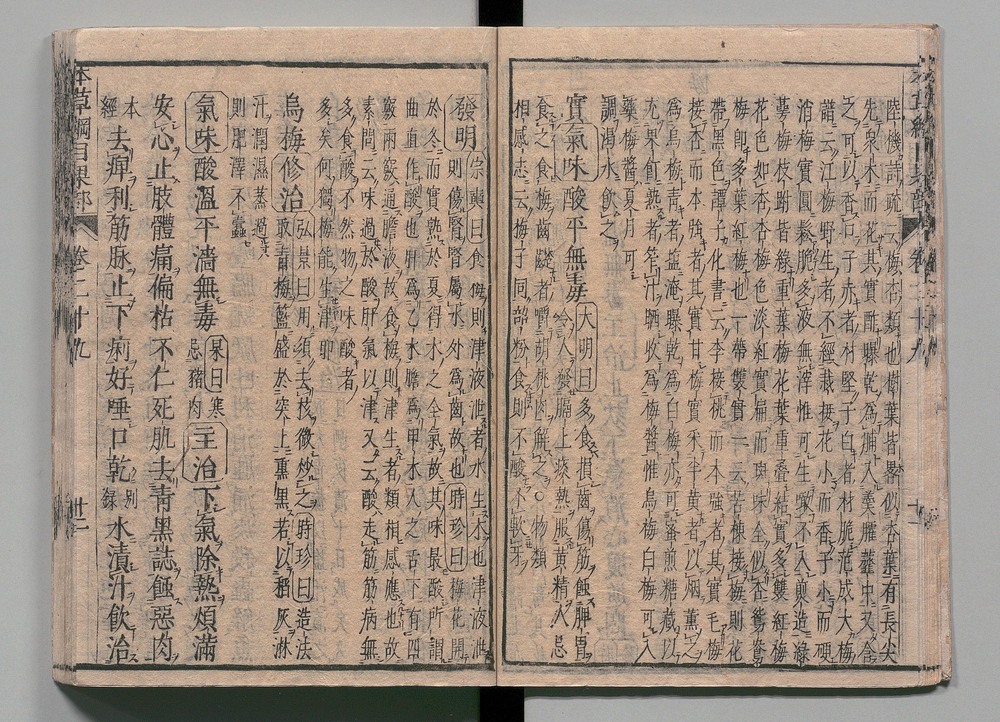 陸機詩疏云梅杏類也樹葉皆畧似杏葉有長尖
先衆木而花其實酢曝乾爲脯入羹臛虀中又含
之可以香口子赤者材堅子白者材脆范成大梅
譜云江梅野生者不經栽接花小而香子小而硬
消梅實圓鬆脆多液無滓惟可生啖不入煎造綠
萼梅枝跗皆綠重葉梅花葉重疊結實多雙紅梅
花色如杏杏梅色淡紅實扁而斑味全似杏鴛鴦
梅即多葉紅梅也一蒂雙實一云苦楝接梅則花
帶黑色譚子化書云李接桃而本強者其實毛梅
接杏而本強者其實甘梅實采半黃者以烟薰之
爲烏梅青者鹽淹曝乾爲白梅亦可蜜煎糖藏以
充果飣熟者笮汁晒收爲梅醬惟烏梅白梅可入
藥梅醬夏月可
調渴水飲之
實氣味酸平無毒 大明曰多食損齒傷筋蝕脾胃
令人發膈上痰熱服黃精人忌
食之食梅齒齼者嚼胡桃肉解之○物類
相感志云梅子同韶粉食則不酸不軟牙
發明宗奭曰食梅則津液泄者水生木也津液泄
則傷腎腎屬水外爲齒故也時珍曰梅花開
於冬而實熟於夏得木之全氣故其味最酸所謂
曲直作酸也肝爲乙木膽爲甲木人之舌下有四
竅兩竅通膽液故食梅則津生者類相感應也故
素問云味過於酸肝氣以津又云酸走筋筋病無
多食酸不然物之味酸者
多矣何獨梅能生津耶
烏梅修治弘景曰用須去核微炒之時珍曰造法
取青梅籃盛於突上熏黑若以稻灰淋
汁潤濕蒸過
則肥澤不蠹
氣味酸溫平濇無毒杲曰寒
忌豬肉主治下氣除熱煩滿
安心止肢體痛偏枯不仁死肌去青黑誌蝕惡肉
本經去痺利筋脉止下痢好唾口乾別錄水漬汁飲治
本草綱目果部 卷二十九 廿二